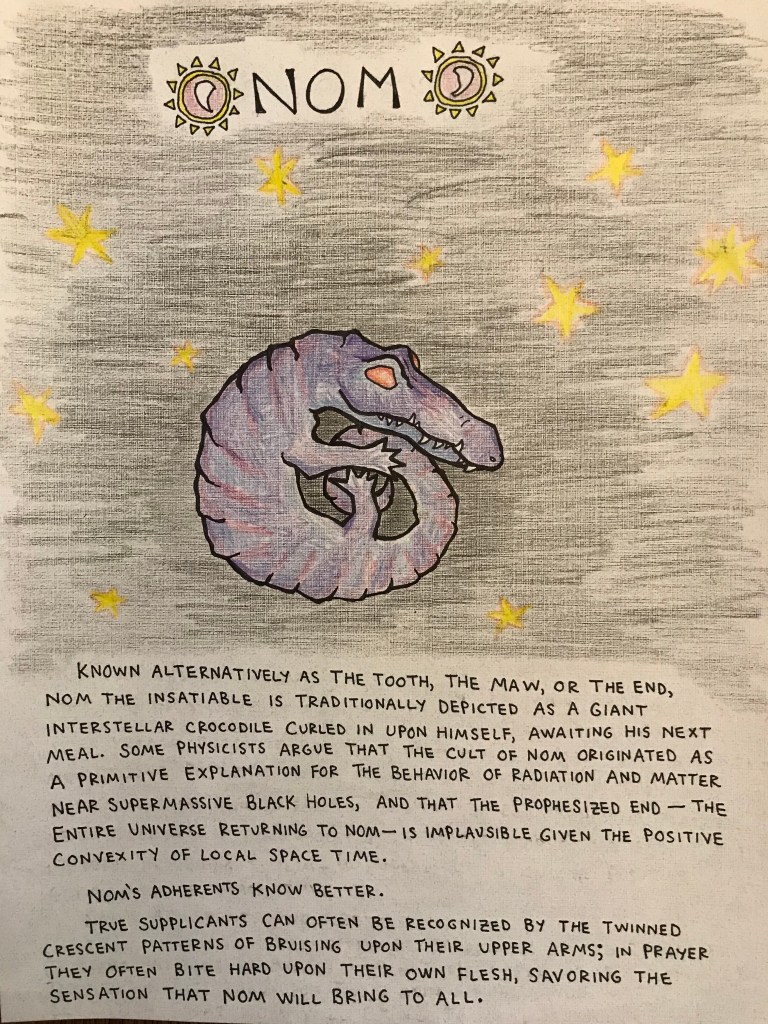 NOM
KNOWN ALTERNATIVELY AS THE TOOTH, THE MAW, OR THE END,
NOM THE INSATIABLE IS TRADITIONALLY DEPICTED AS A GIANT
INTERSTELLAR CROCODILE CURLED IN UPON HIMSELF, AWAITING HIS NEXT
MEAL. SOME PHYSICISTS ARGUE THAT THE CULT OF NOM ORIGINATED AS
A PRIMITIVE EXPLANATION FOR THE BEHAVIOR OF RADIATION AND MATTER
NEAR SUPERMASSIVE BLACK HOLES, AND THAT THE PROPHESIZED END — THE
ENTIRE UNIVERSE RETURNING TO NOM — IS IMPLAUSIBLE GIVEN THE POSITIVE
CONVEXITY OF LOCAL SPACE TIME.
NOM'S ADHERENTS KNOW BETTER.
TRUE SUPPLICANTS CAN OFTEN BE RECOGNIZED BY THE TWINNED
CRESCENT PATTERNS OF BRUISING UPON THEIR UPPER ARMS; IN PRAYER
THEY OFTEN BITE HARD UPON THEIR OWN FLESH, SAVORING THE
SENSATION THAT NOM WILL BRING TO ALL.